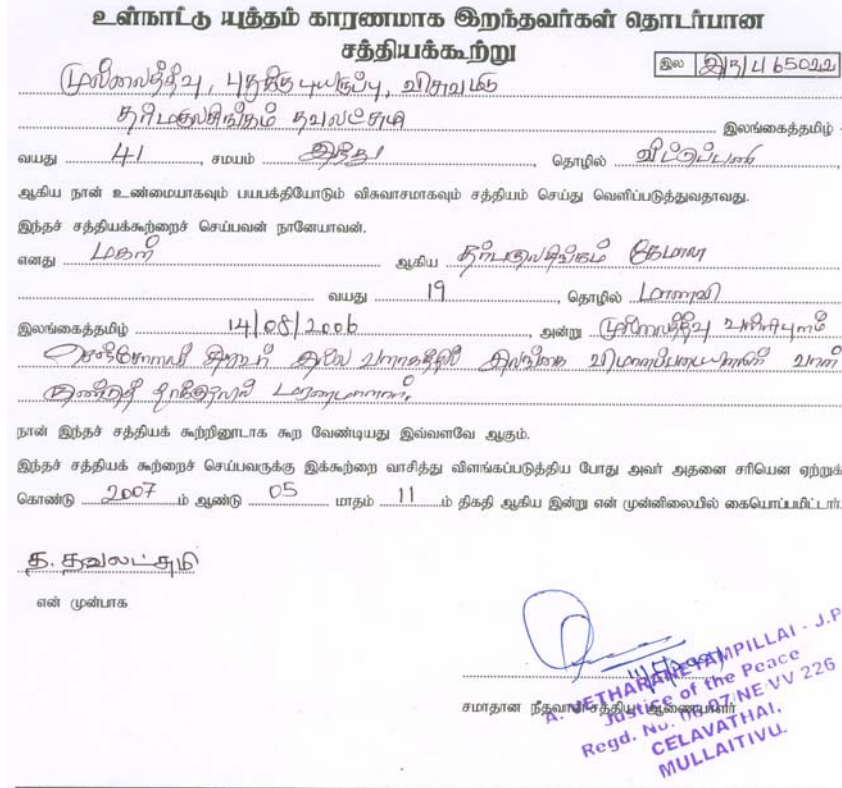 உள்நாட்டு யுத்தம் காரணமாக இறந்தவர்கள் தொடர்பான
சத்தியக்கூற்று
இல இ/இ/ப 65022
முல்லைத்தீவு, புதுக்குடியிருப்பு, விசுவமடு
தர்மகுலசிங்கம் தவலட்சுமி இலங்கைத்தமிழ் -
வயது 41, சமயம் இந்து, தொழில் வீட்டுப்பணி,
ஆகிய நான் உண்மையாகவும் பயபக்தியோடும் விசுவாசமாகவும் சத்தியம் செய்து வெளிப்படுத்துவதாவது.
இந்தச் சத்தியக்கூற்றைச் செய்பவன் நானேயாவன்.
எனது மகள் ஆகிய தர்மகுலசிங்கம் கேமாலா
வயது 19, தொழில் மாணவி
இலங்கைத்தமிழ் 14/08/2006, அன்று முல்லைத்தீவு வள்ளிபுனம்
செஞ்சோலை சிறுவர் இல்ல வளாகத்தில் இலங்கை விமானப்படையினரின் வான்
குண்டுத் தாக்குதலில் மரணமானார்.
நான் இந்தச் சத்தியக் கூற்றினூடாக கூற வேண்டியது இவ்வளவே ஆகும்.
இந்தச் சத்தியக் கூற்றைச் செய்பவருக்கு இக்கூற்றை வாசித்து விளங்கப்படுத்திய போது அவர் அதனை சரியென ஏற்றுக்
கொண்டு 2007 ம் ஆண்டு 05 மாதம் 11 ம் திகதி ஆகிய இன்று என் முன்னிலையில் கையொப்பமிட்டார்.
த. தவலட்சுமி
என் முன்பாக
11/5/2007
சமாதான நீதவான்/சத்திய ஆணையாளர்
A. VETHARANEYAMPILLAI - J.P
Justice of the Peace
Regd. No. 07/NE/VV 226
CELAVATHAI,
MULLAITIVU.